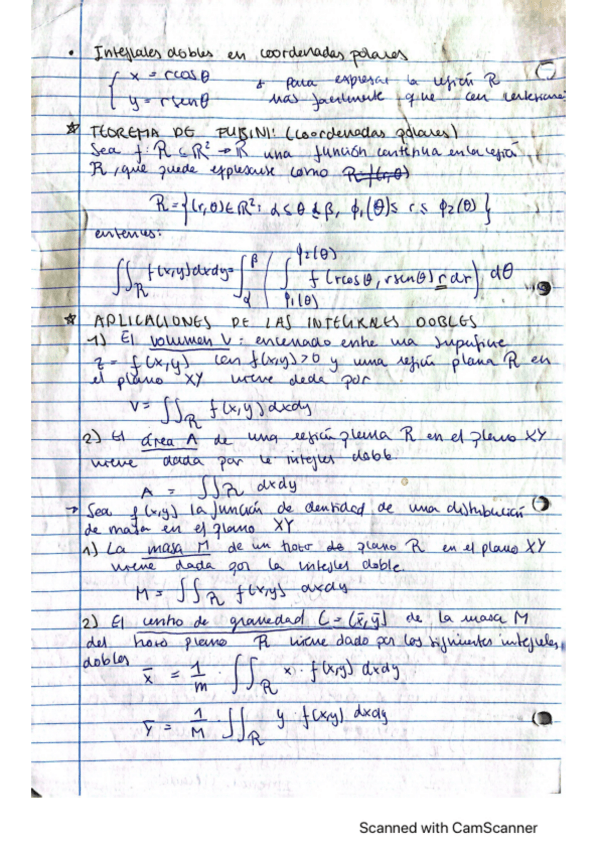 • Integrales dobles en coordenadas polares
{ x = rcosθ
y = rsenθ
* para expresar la región R
más facilmente que con
☆ TEOREMA DE FUBINI: (coordenadas polares)
Sea f: R ⊆ ℝ² → ℝ una función continua en la región
R, que puede expresarse como R = f(r,θ)
R = {(r,θ) ∈ ℝ²: α ≤ θ ≤ β, ϕ₁(θ) ≤ r ≤ ϕ₂(θ)}
entonces:
∬_R f(x,y)dxdy = ∫_α^β ( ∫_{φ₁(θ)}^{φ₂(θ)} f(rcosθ, rsenθ) r dr ) dθ
☆ APLICACIONES DE LAS INTEGRALES DOBLES
1) El volumen V: encerrado entre una superficie
z = f(x,y) con f(x,y) > 0 y una región plana R en
el plano XY viene dada por
V = ∬_R f(x,y) dxdy
2) El área A de una región plana R en el plano XY
viene dada por la integral doble.
A = ∬_R dxdy
→ Sea f(x,y) la función de densidad de una distribución
de masa en el plano XY
1) La masa M de un trozo de plano R en el plano XY
viene dada por la integral doble.
M = ∬_R f(x,y) dxdy
2) El centro de gravedad C = (x̄, ȳ) de la masa M
del trozo plano R viene dado por las siguientes integrales
dobles
x̄ = 1/m · ∬_R x · f(x,y) dxdy
ȳ = 1/M · ∬_R y · f(x,y) dxdy
Scanned with CamScanner